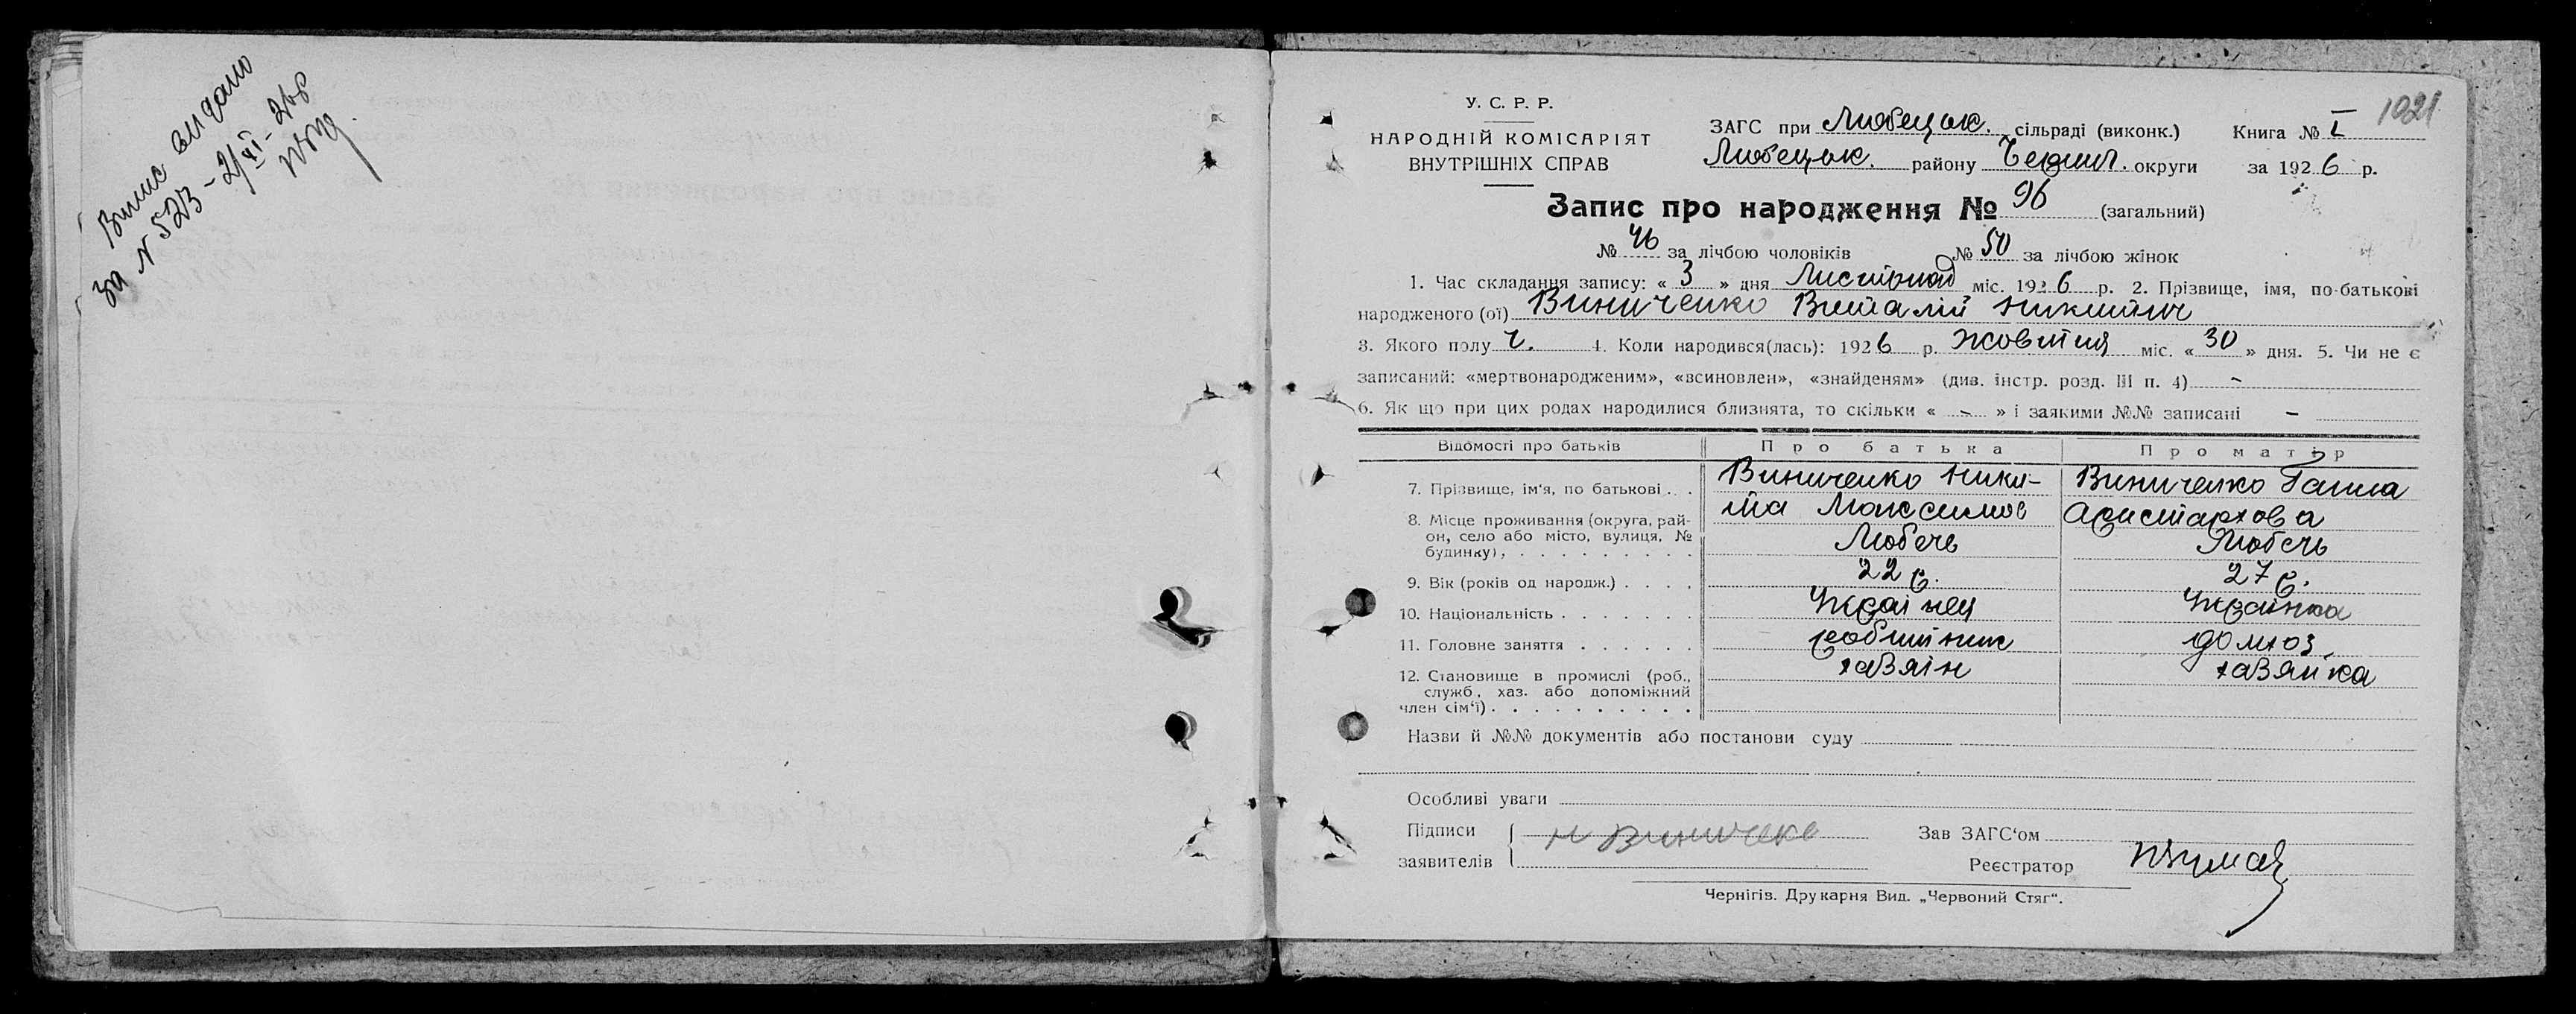 Випис видано
за № 523 - 2/XI - 26 р
У. С. Р. Р.
НАРОДНІЙ КОМІСАРІЯТ
ВНУТРІШНІХ СПРАВ
ЗАГС при Любецьк. сільраді (виконк.)
Любецьк. району Черниг. округи
Книга № I
1021
за 1926 р.
Запис про народження № 96 (загальний)
№ 46 за лічбою чоловіків № 50 за лічбою жінок
1. Час складання запису: « 3 » дня Листопад міс. 1926 р. 2. Прізвище, імя, по-батькові
народженого (ої) Виниченко Виталій Никитич
3. Якого полу ч. 4. Коли народився(лась): 1926 р. Жовтня міс. « 30 » дня. 5. Чи не є
записаний: «мертвонародженим», «всиновлен», «знайденям» (див. інстр. розд. III п. 4) -
6. Як що при цих родах народилися близнята, то скільки « - » і заякими №№ записані -
Відомості про батьків Про батька Про матір
7. Прізвище, ім'я, по батькові . . Виниченко Ники- Виниченко Ганна
та Максимов Аристархова
8. Місце проживання (округа, рай-
он, село або місто, вулиця, №
будинку), . . . . . . . . . Любечь Любечь
9. Вік (років од народж.) . . . . 22 р. 27 р.
10. Національність . . . . . . . Українец Українка
11. Головне заняття . . . . . . робитник домхоз.
12. Становище в промислі (роб., хазяїн хазяйка
служб, хаз. або допоміжний
член сім'ї) . . . . . . . . . .
Назви й №№ документів або постанови суду
Особливі уваги
Підписи
заявителів
Н Виниченко
Зав ЗАГС'ом
Реєстратор
Чернігів. Друкарня Вид. „Червоний Стяг".